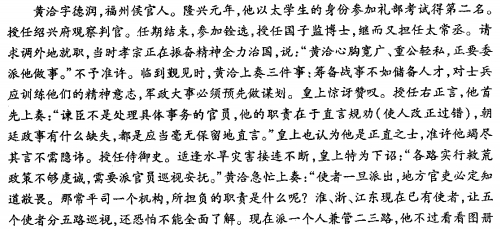 黄洽字德润，福州侯官人。隆兴元年，他以太学生的身份参加礼部考试得第二名。
授任绍兴府观察判官。任期结束，参加铨选，授任国子监博士，继而又担任太常丞。请
求调外地就职，当时孝宗正在振奋精神全力治国，说：“黄洽心胸宽广、重公轻私，正要委
派他做事。”不予准许。临到觐见时，黄洽上奏三件事：筹备战事不如储备人才，对士兵
应训练他们的精神意志，军政大事必须预先做谋划。皇上惊讶赞叹。授任右正言，他首
先上奏：“谏臣不是处理具体事务的官员，他的职责在于直言规劝（使人改正过错），朝
廷政事有什么缺失，都是应当毫无保留地直言。”皇上也认为他是正直之士，准许他竭尽
其言不需隐讳。授任侍御史。适逢水旱灾害接连不断，皇上特为下诏：“各路实行救荒
政策不够虔诚，需要派官员巡视安抚。”黄洽急忙上奏：“使者一旦派出，地方官吏必定知
道敬畏。那常平司一个机构，所担负的职责是什么呢？淮、浙、江东现在已有使者，让五
个使者分五路巡视，还恐怕不能全面了解。现在派一个人兼管二三路，他不过看看图册